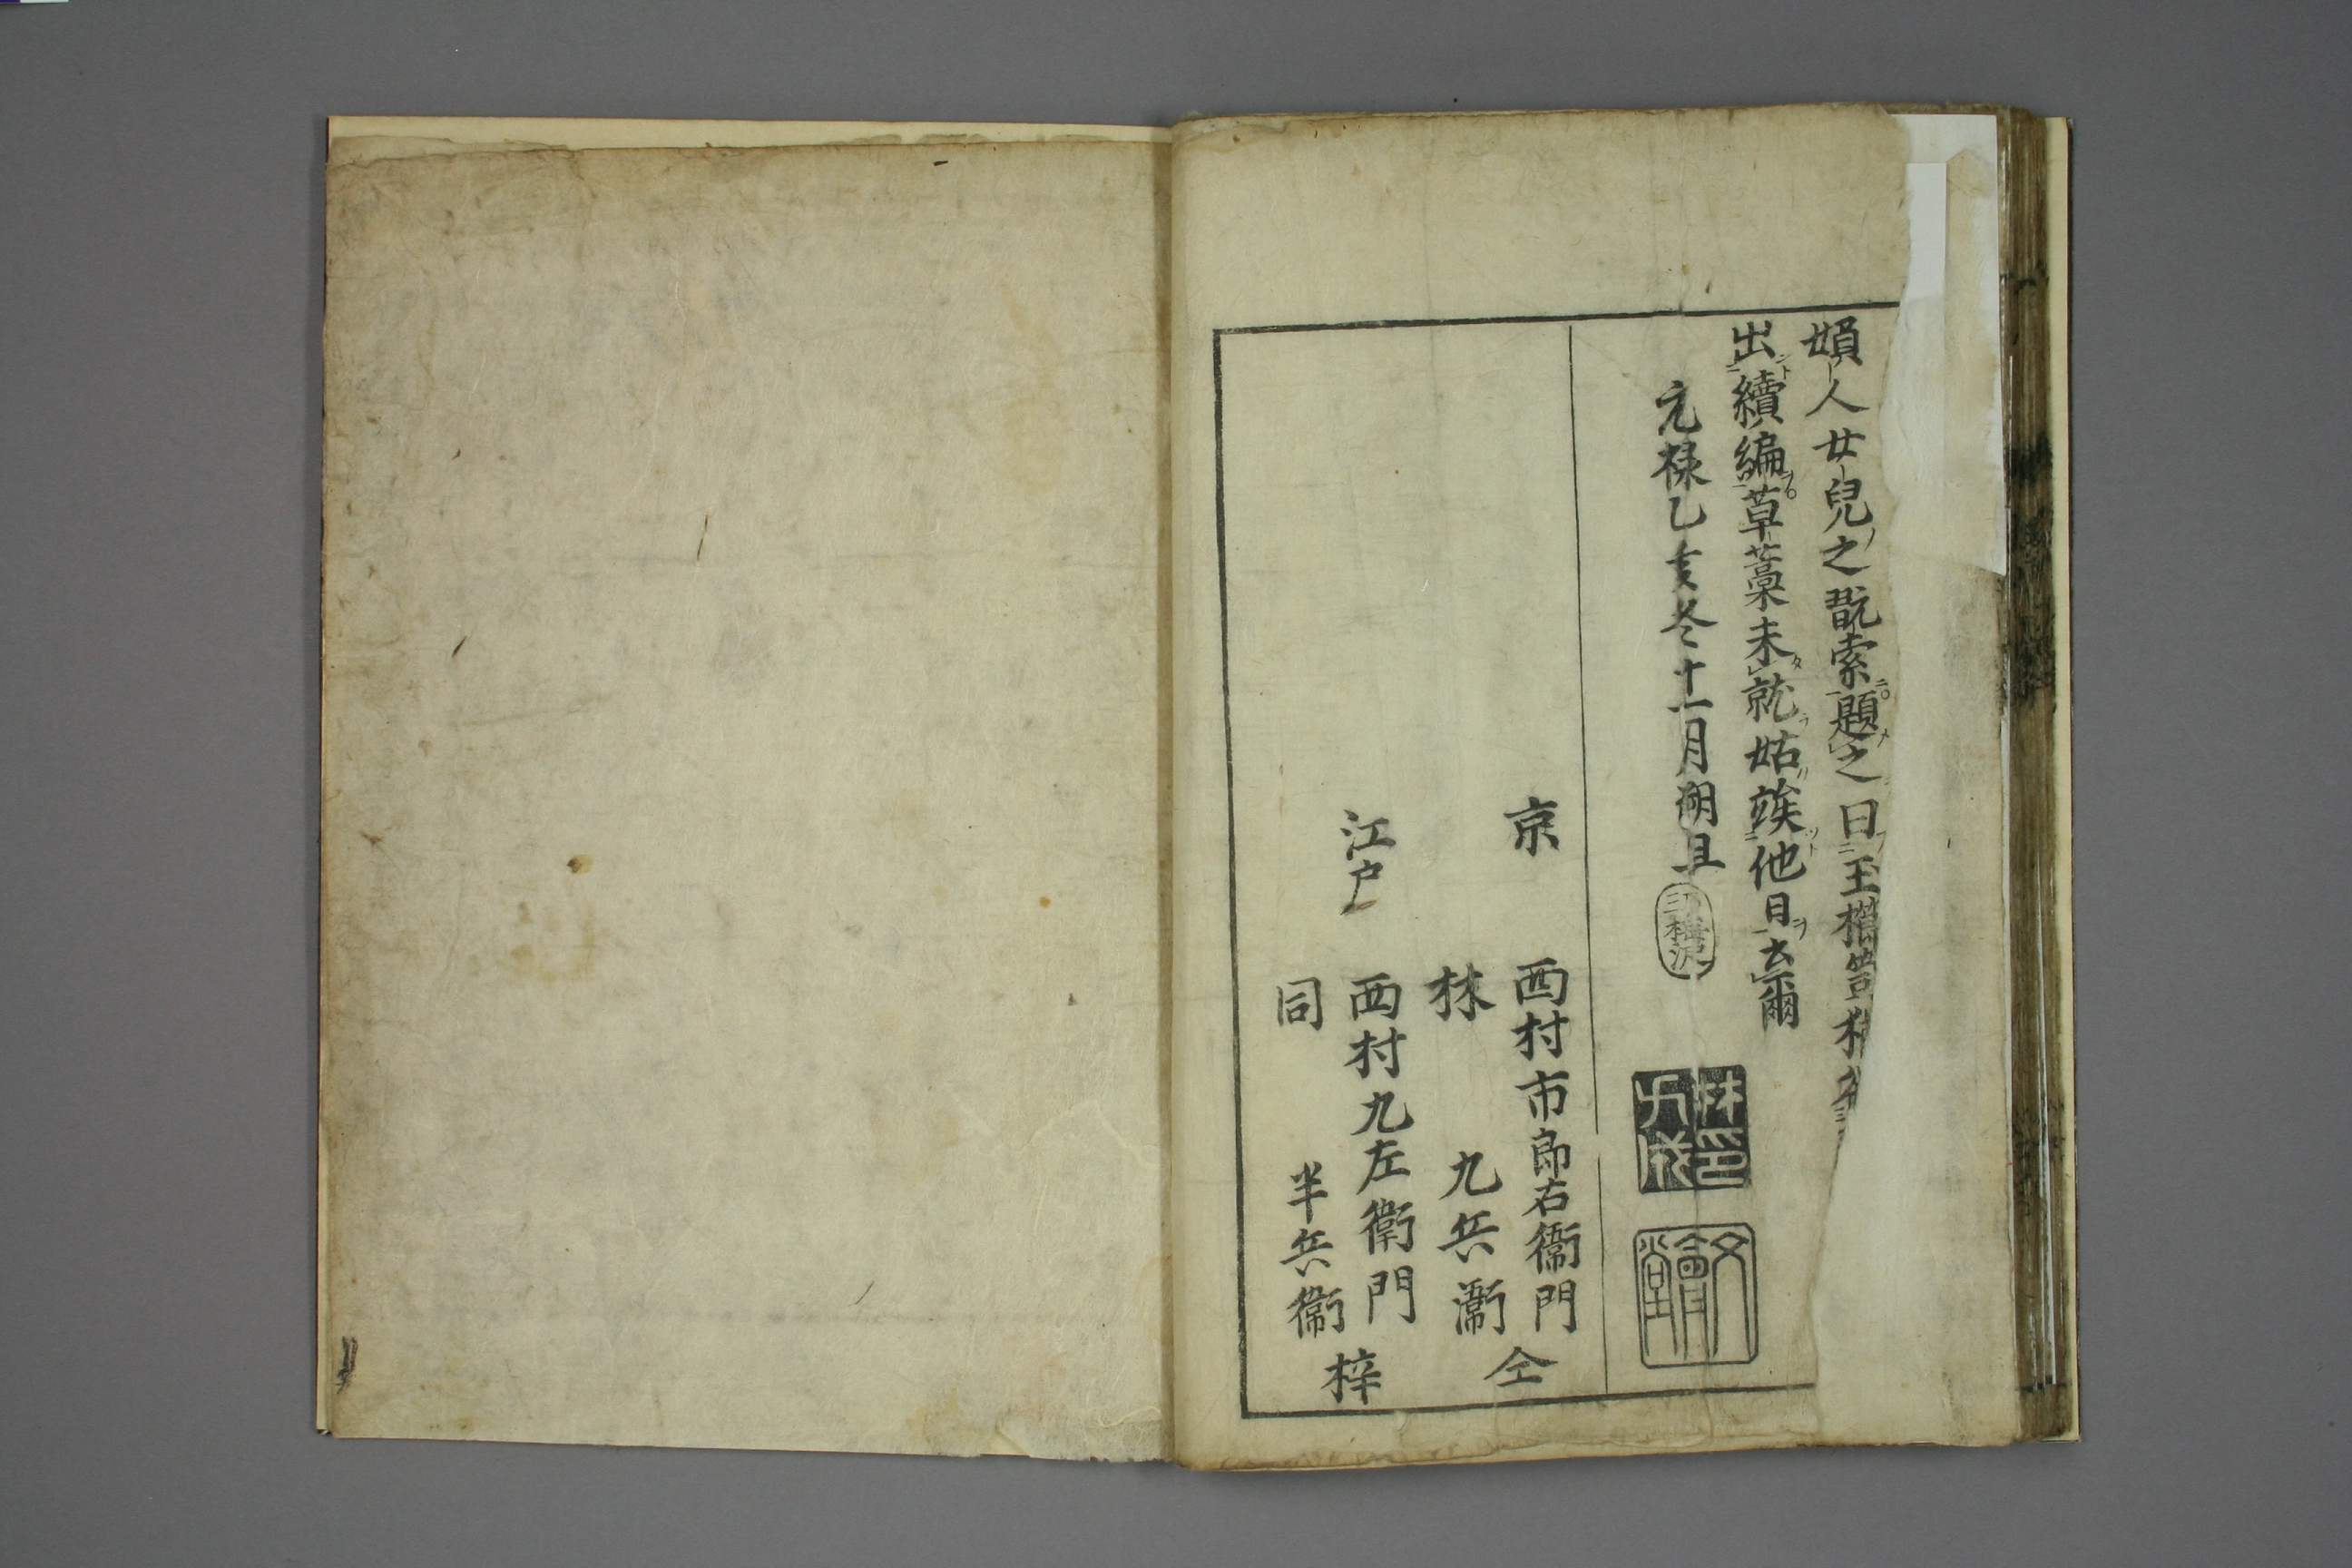 媍人女兒之翫索題之曰玉櫛笥
出續編草藁未就姑竢他日云爾
元禄乙亥冬十一月朔旦
林印九成
文會堂
京 西村市郎右衞門
林 九兵衞 仝
江戸 西村九左衛門
同 半兵衞 梓